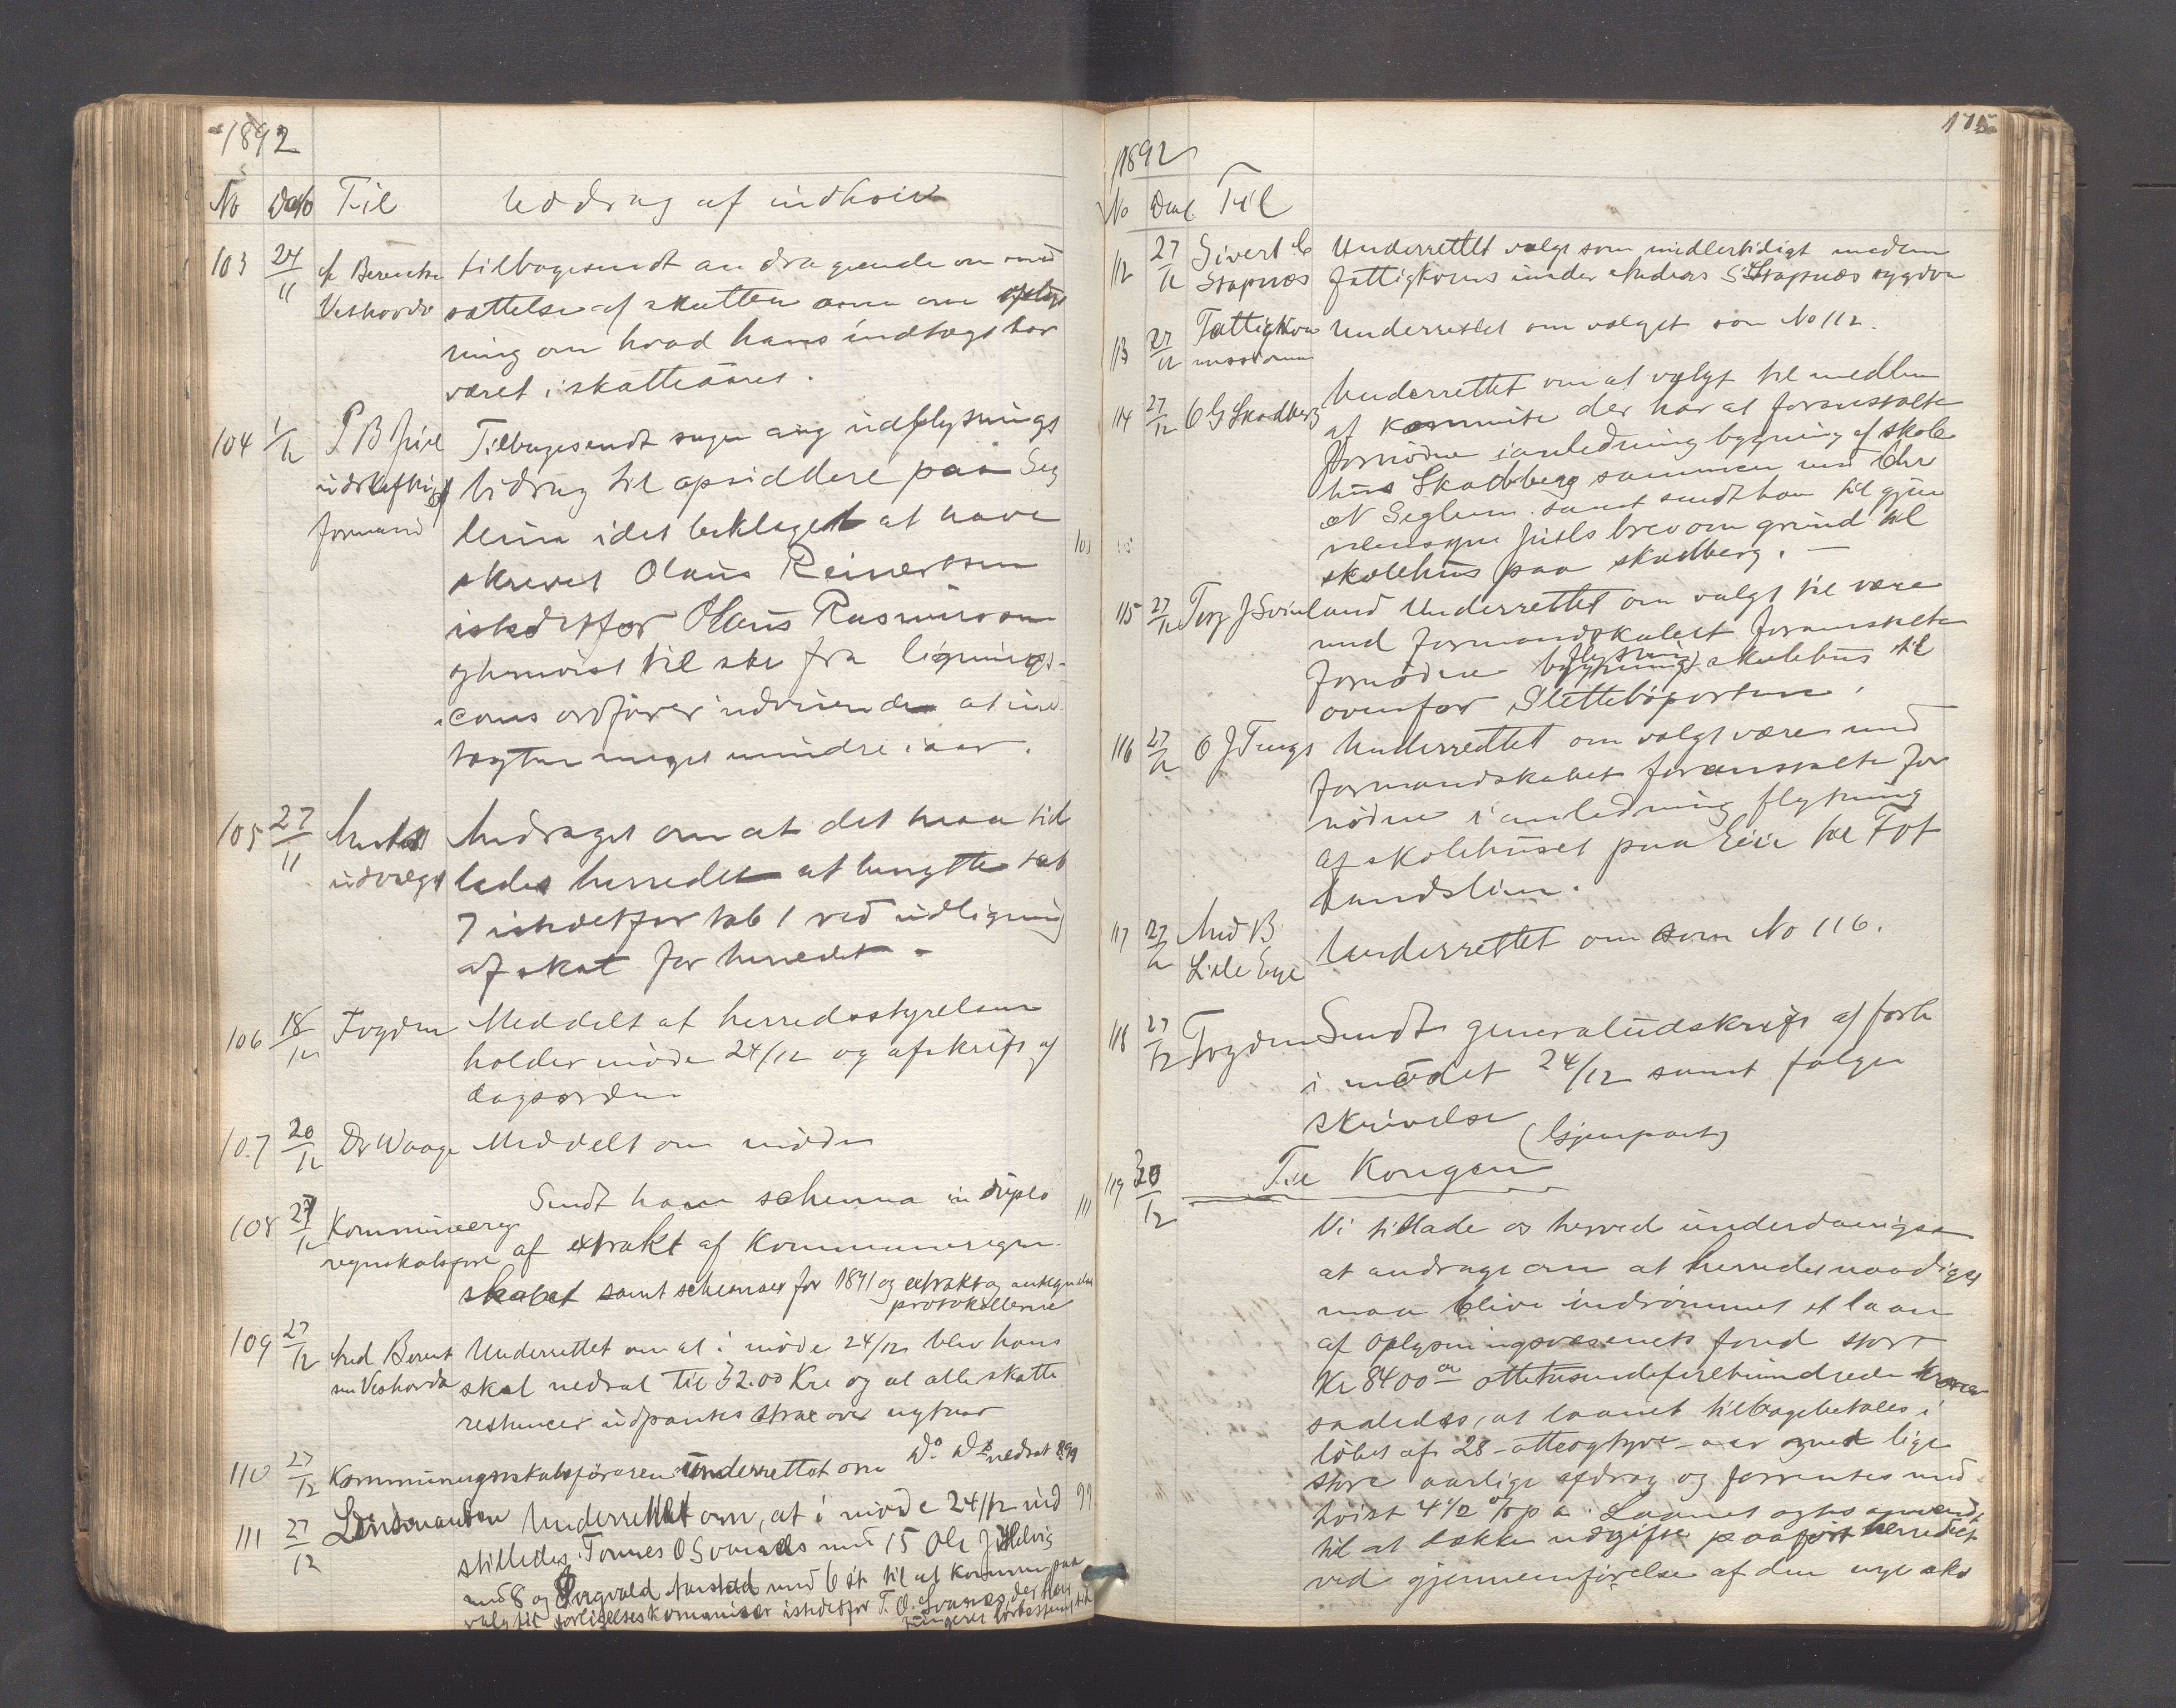 1892
No Dato Til Uddrag af indhold
103 24/11 A Berentsen tilbagesendt andragende om ned
Veshovde sættelse af skatten om oplys
ning om hvad hans indtægt har
været i skatteaaret.
104 1/12 P B Juel Tilbagesendt sagen ang udflytnings
udskiftnings bidrag til opsiddere paa Seg
formand leim idet beklaget at have
skrevet Olaus Reinertsen
istedetfor Olaus Rasmussen
ghenvist til ske fra lignings-
coms ordfører udvisende at ind
tægten meget mindre iaar.
105 27/11 Amts Andraget om at det maa til
udvalget lades herredet at benytte tab
7 istedetfor tab 1 ved udligning
af skat for herredet -
106 18/12 Fogden Meddelt at herredsstyrelsen
holder møde 24/12 og afskrift af
dagsorden
107 20/12 Dr Waage Meddelt om møde
108 27/12 Kommune Sendt ham schema in duplo
regnskabsfører af extrakt af Kommuneregn
skabet samt schemaer for 1891 og extrakt og antegnelses
protokollerne
109 27/12 And Berent Underrettet om at i møde 24/12 blev hans
sen Veshovde skat nedsat til 32.00 Kr og at alle skatte
restancer udpantes strax over nytaar
110 27/12 Kommuneregnskabsføreren Underrettet om Do Do nedsat
111 27/12 Lensmanden Underrettet om, at i møde 24/12 ind
stilledes Tønnes O Svanes med 15 Ole J Helvig
med 8 og Ingvald Aarstad med 6 st. til at komme paa
valg til forligelseskommisær istedetfor T. O. Svanes, der har
fungeret lovbestemt tid
175
1892
No Dat Til
112 27/12 Sivert C Underrettet valgt som midlertidigt medlem
Stapnæs fattigkoms under Anders S Stapnæs sygdom
113 27/12 Fattigkom Underrettet om valget som No 112.
missionen
114 27/12 O G Skadberg Underrettet om at valgt til medlem
af Kommite der har at foranstalte
fornødne i anledning bygning af skole
hus Skadberg sammen med Chr
N Seglem. samt sendt ham til gjen
nemsyn Juels brev om grund til
skolehus paa Skadberg. -
115 27/12 Torg J Svinland Underrettet om valgt til være
med formandskabet foranstalte
fornødne flytning skolehus til
ovenfor Slettebøporten.
116 27/12 O J Tengs Underrettet om valgt være med
formandskabet foranstalte for
nødne i anledning flytning
af skolehuset paa Eie til Fot
landslien.
117 27/12 And B Underrettet om som No 116.
Lille Eige
118 27/12 Fogden Sendt generaludskrift af forh
i mødet 24/12 samt følger
skrivelse (Gjenpart)
119 30/12 Til Kongen
Vi tillade os herved underdanigst
at andrage om at herredet naadigst
maa blive indrømmet et laan
af Oplysningsvæsenets fond stort
Kr 8400 00 ottetusindefirehundrede Kroner
saaledes, at laanet tilbagebetales i
løbet af 28 - otteogtyve - aar med lige
store aarlige afdrag og forrentes med
høist 4 1/2 % p a. Laanet agtes anvendt
til at dække udgifter paaført herredet
ved gjennemførelse af den nye sko